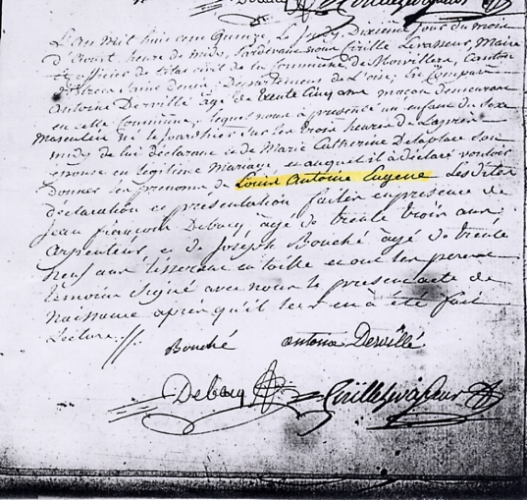 L'An Mil huis cens quinze, Le Jeudy Dixieme Jour du mois
D'Aoust heure de midy, Pardevans nous Cirille Levasseur, Maire
et officier de l'état civil de la Commune de Morvillers, Canton
Département de L'oise, Est Comparu
Antoine Derville âgé de trente Cinq ans maçon demeurans
en cette Commune, lequel nous à présenté un enfans du Sexe
masculin né le jour d'hier sur les trois heures de L'apres
midy de lui déclarans et de Marie Catherine Delaplace son
epouse en legitime Mariage et auquel il à déclaré vouloir
donner les prénoms de Louis Antoine Eugene Les dites
déclaration et presentation faites en presence de
Jean françois Debacq âgé de trente trois ans
Carpentier, et de Joseph Bouché âgé de trente
neuf ans tisserans en toille et ont les
témoins Signé avec nous le present acte de
Naissance après qu'il leur en à été fait
Lecture.//.
Bouché antoine Dervillé
Debacq Cirille Levasseur